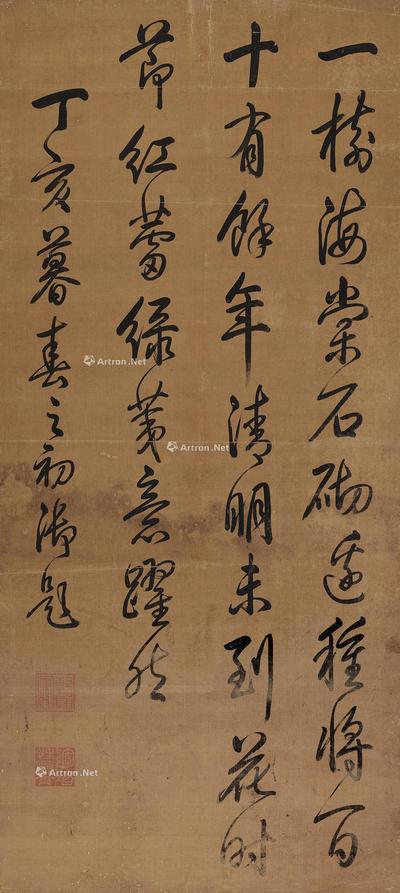 一樹海棠石砌邊種將百
十有餘年清明未到花時
節紅蕾綠萼意躍然
丁亥暮春之初御題
Artron.Net
Artron.Net
Artron.Net